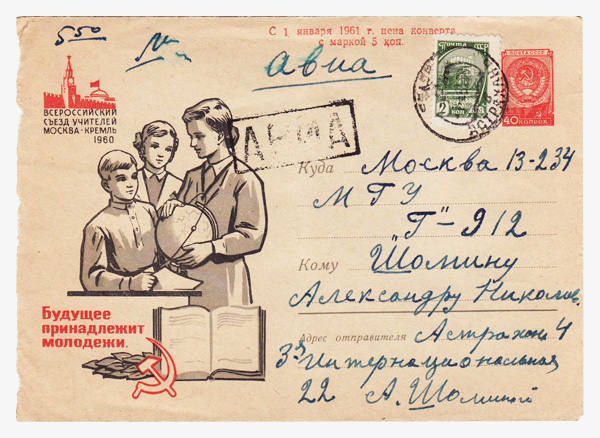 С 1 января 1961 г. цена конверта
с маркой 5 коп.
550
Авиа
ПОЧТА СССР
2
КОП
ПОЧТА СССР
40 КОПЕЕК
ВСЕРОССИЙСКИЙ
СЪЕЗД УЧИТЕЛЕЙ
МОСКВА-КРЕМЛЬ
1960
АВИА
Куда Москва 13-234
МГУ
"Г"-912
Кому Шомину
Александру Николов.
Адрес отправителя Астрахань 4
3я Интернациональная
22 А. Шоминой
Будущее
принадлежит
молодежи.